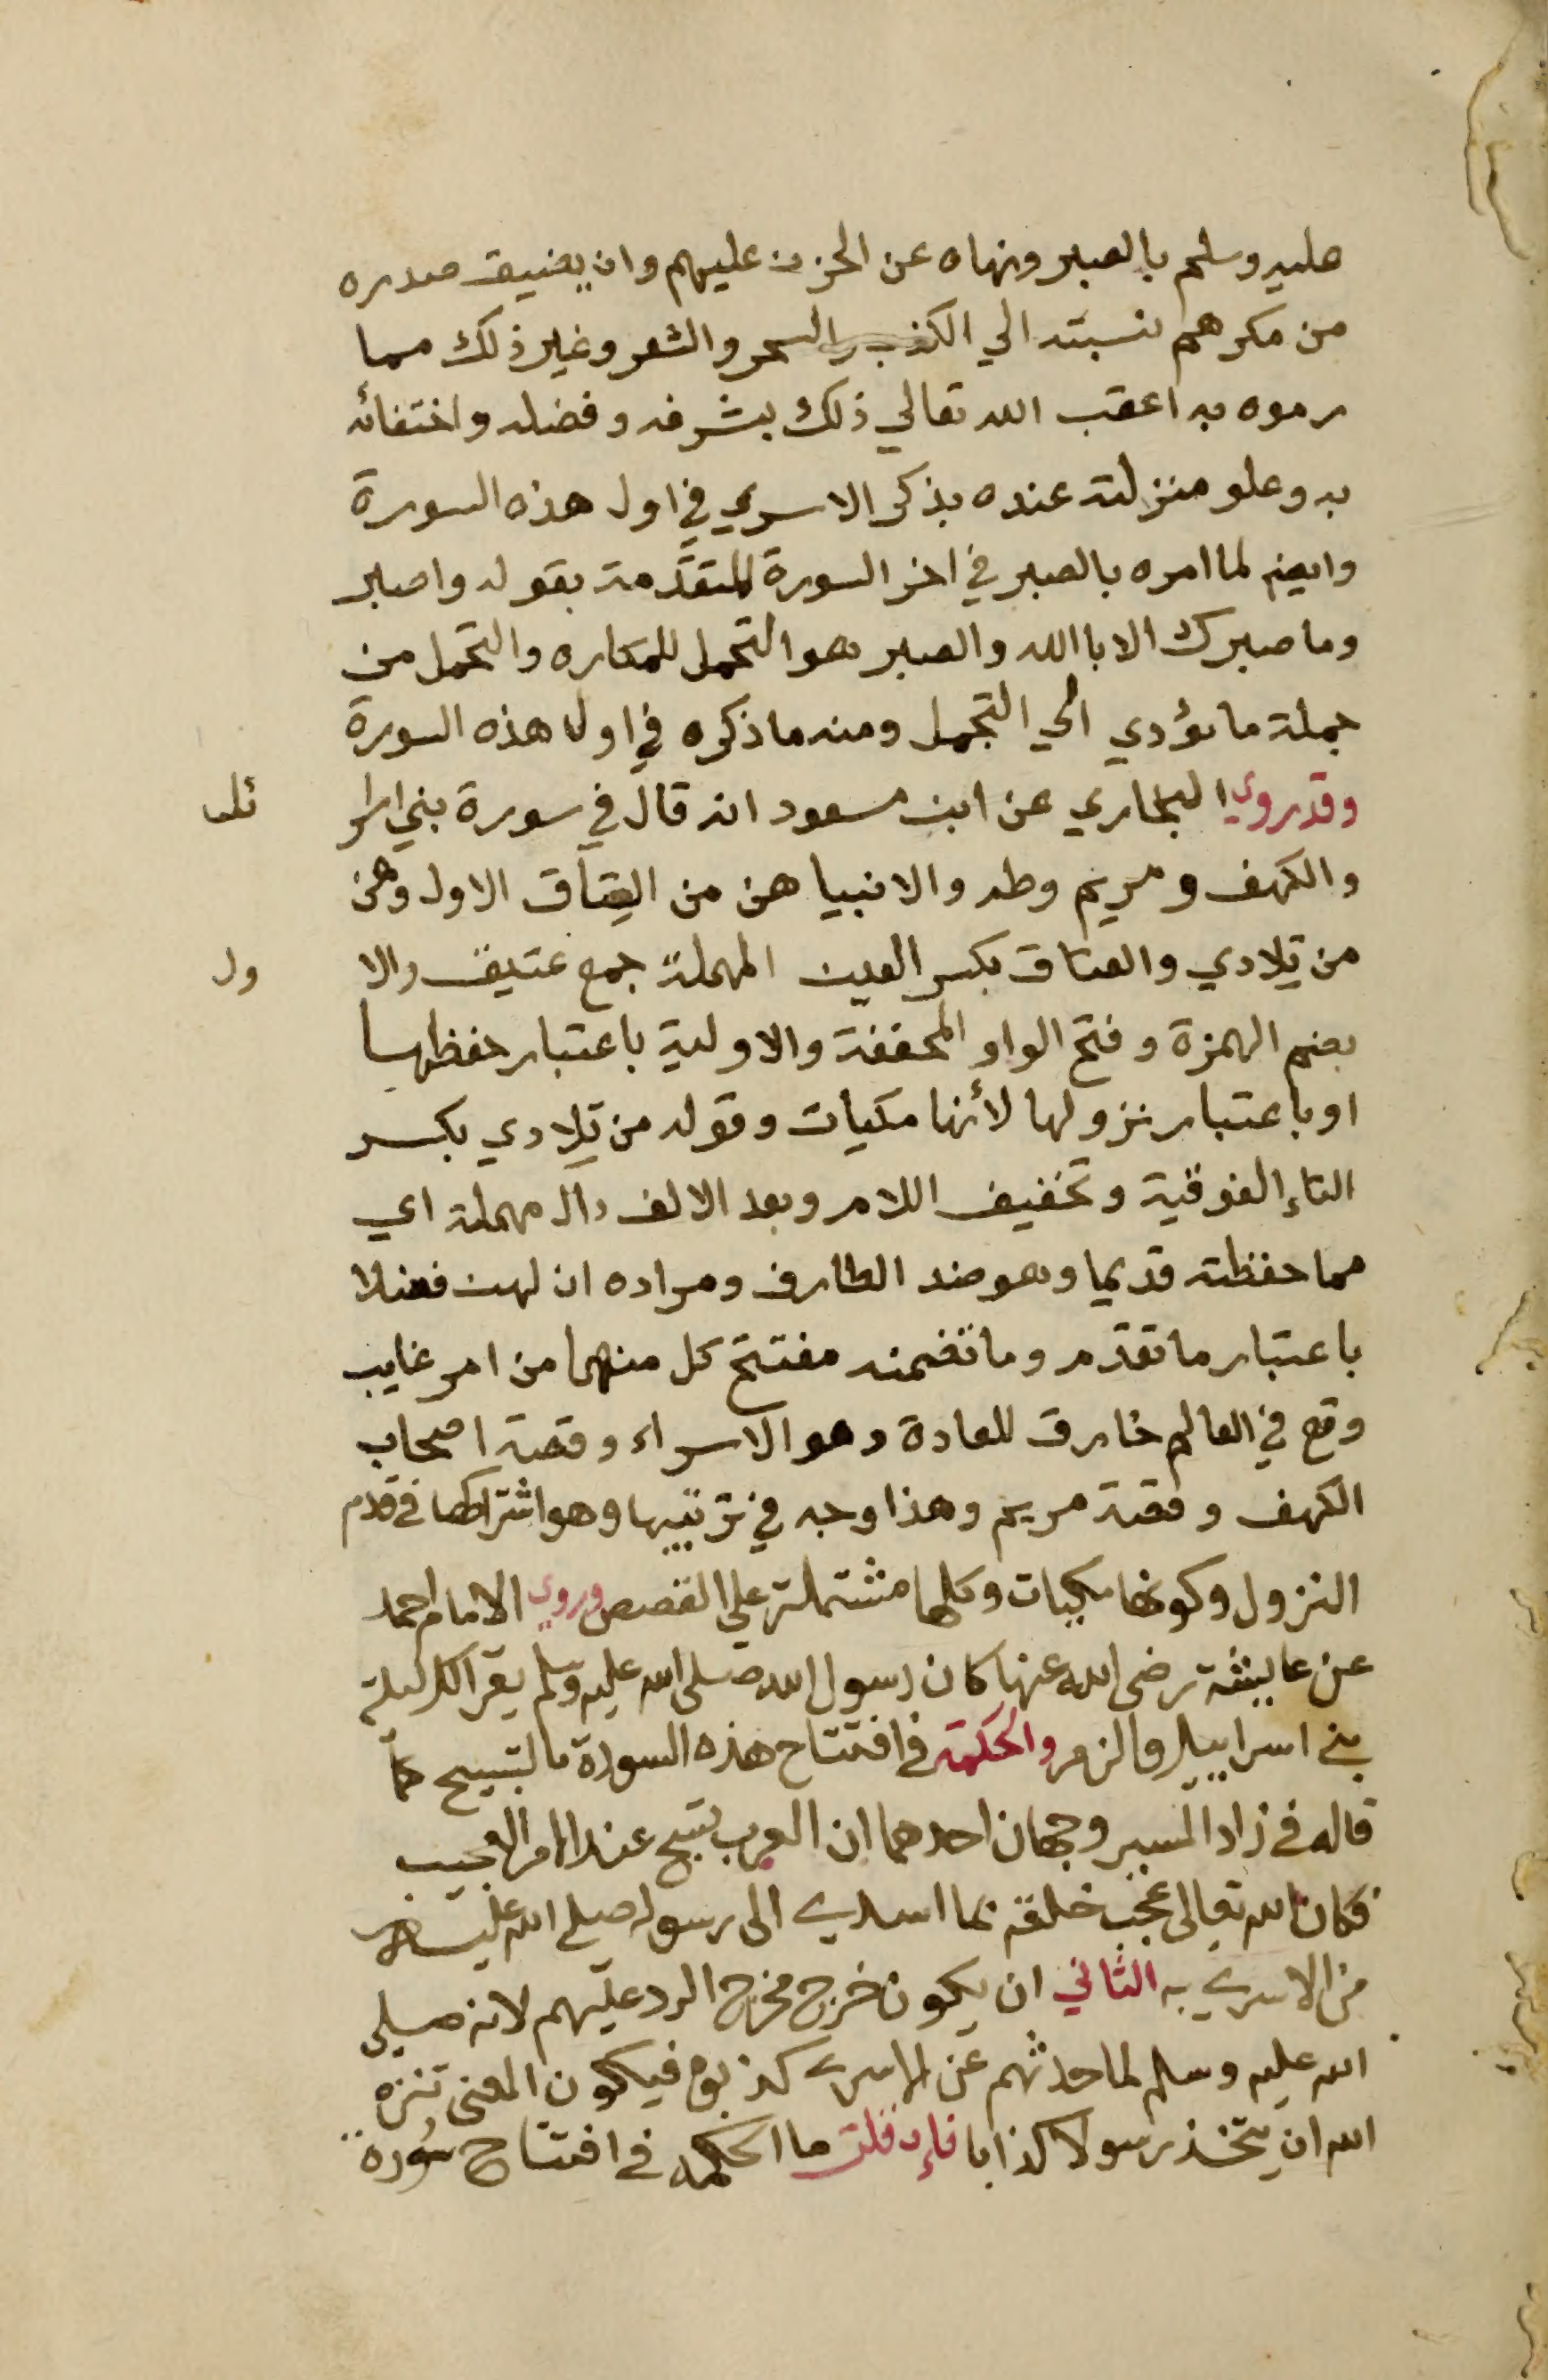 عليه وسلم بالصبر ونهاه عن الحزن عليهم وان يضيق صدره
من مكرهم نسبته الي الكذب والسحر والشعر وغير ذلك مما
رموه به اعقب الله تعالي ذلك بشرفه وفضله واختفائه
به وعلو منزلته عنده بذكر الاسري في اول هذه السورة
وايضم لما امره بالصبر في اخر السورة المتقدّمة بقوله واصبر
وما صبرك الا باالله والصبر هو التحمل للمكاره والتحمل من
جملة ما يؤدي الي التجمل ومنه ما ذكره في اول هذه السورة
وقد روي البخاري عن ابن مسعود انه قال في سورة بني اسرا ئل
والكهف ومريم وطه والانبيا هن من العِتاق الاول وهن
من تِلادي والعتاق بكسر العين المهملة جمع عتيق والا ول
بضم الهمزة وفتح الواو المخففة والاولية باعتبار حفظها
او باعتبار نزولها لأنها مكيات وقوله من تِلادي بكسر
التاء الفوقية وتخفيف اللام وبعد الالف دال مهملة اي
مما حفظته قديما وهو ضد الطارف ومراده ان لهن فضلا
باعتبار ما تقدّم وما تضمنه مفتتح كل منهما من امر غايب
وقع في العالم خارق للعادة وهو الاسراء وقصة اصحاب
الكهف وقصة مريم وهذا وجه في ترتيبها وهو اشتراكها في قدم
النزول وكونها مكيات وكلها مشتملة علي القصص وروي الامام احمد
عن عايشة رضى الله عنها كان رسول الله صلى الله عليه وسلم يقرا كل ليلة
بني اسراييل والزمر والحكمة في افتتاح هذه السورة بالتسبيح كما
قاله في زاد المسير وجهان احدهما ان العرب تسبح عند الامر العجيب
فكان الله تعالى عجّب خلقه بما اسدي الى رسوله صلي الله عليه
من الاسري به الثاني ان يكون خرج مخرج الرد عليهم لانه صلي
الله عليه وسلم لما حدثهم عن الاسري كذبوه فيكون المعنى تنزه
الله ان يتخذ رسولا كذابا فإن قلت ما الحكمة في افتتاح سورة